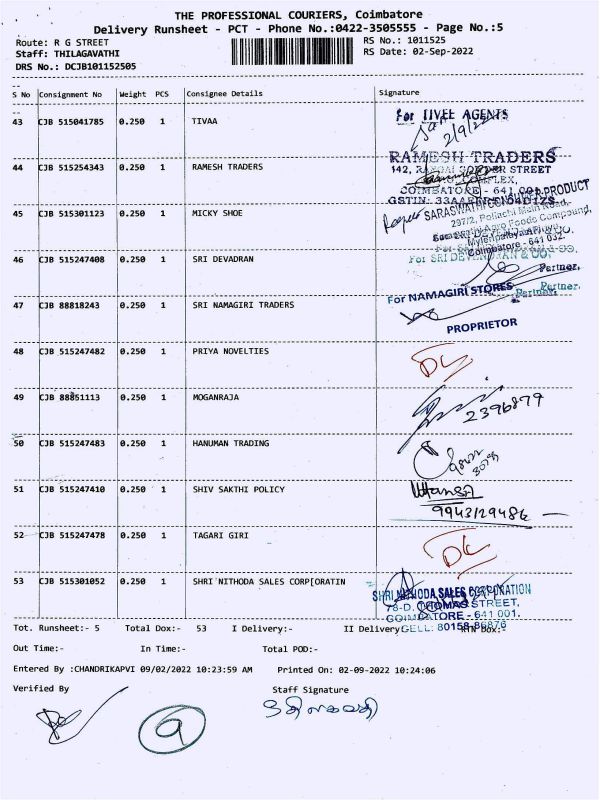 THE PROFESSIONAL COURIERS, Coimbatore
Delivery Runsheet - PCT - Phone No.:0422-3505555 - Page No.:5
Route: R G STREET
RS No.: 1011525
Staff: THILAGAVATHI
RS Date: 02-Sep-2022
DRS No.: DCJB101152505
S No Consignment No Weight PCS Consignee Details Signature
43 CJB 515041785 0.250 1 TIVAA
For IIVEE AGENTS
2/9/22
44 CJB 515254343 0.250 1 RAMESH TRADERS
RAMESH TRADERS
COIMBATORE - 641 001.
45 CJB 515301123 0.250 1 MICKY SHOE
SARASWATHI CONSUMER PRODUCT
297/2, Pollachi Main Road,
Coimbatore - 641 032.
46 CJB 515247408 0.250 1 SRI DEVADRAN
For SRI DEVENDRAN & CO.
Partner.
Partner.
47 CJB 88818243 0.250 1 SRI NAMAGIRI TRADERS
For NAMAGIRI STORES
PROPRIETOR
48 CJB 515247482 0.250 1 PRIYA NOVELTIES
DL
49 CJB 88851113 0.250 1 MOGANRAJA
2396879
50 CJB 515247483 0.250 1 HANUMAN TRADING
51 CJB 515247410 0.250 1 SHIV SAKTHI POLICY
52 CJB 515247478 0.250 1 TAGARI GIRI
DL
53 CJB 515301052 0.250 1 SHRI NITHODA SALES CORP[ORATIN
SHRI NITHODA SALES CORPORATION
78-D, THOMAS STREET,
COIMBATORE - 641 001.
CELL: 80158-86876
Tot. Runsheet:- 5 Total Dox:- 53 I Delivery:- II Delivery:- RTN Dox:-
Out Time:- In Time:- Total POD:-
Entered By :CHANDRIKAPVI 09/02/2022 10:23:59 AM Printed On: 02-09-2022 10:24:06
Verified By Staff Signature
திலகவதி